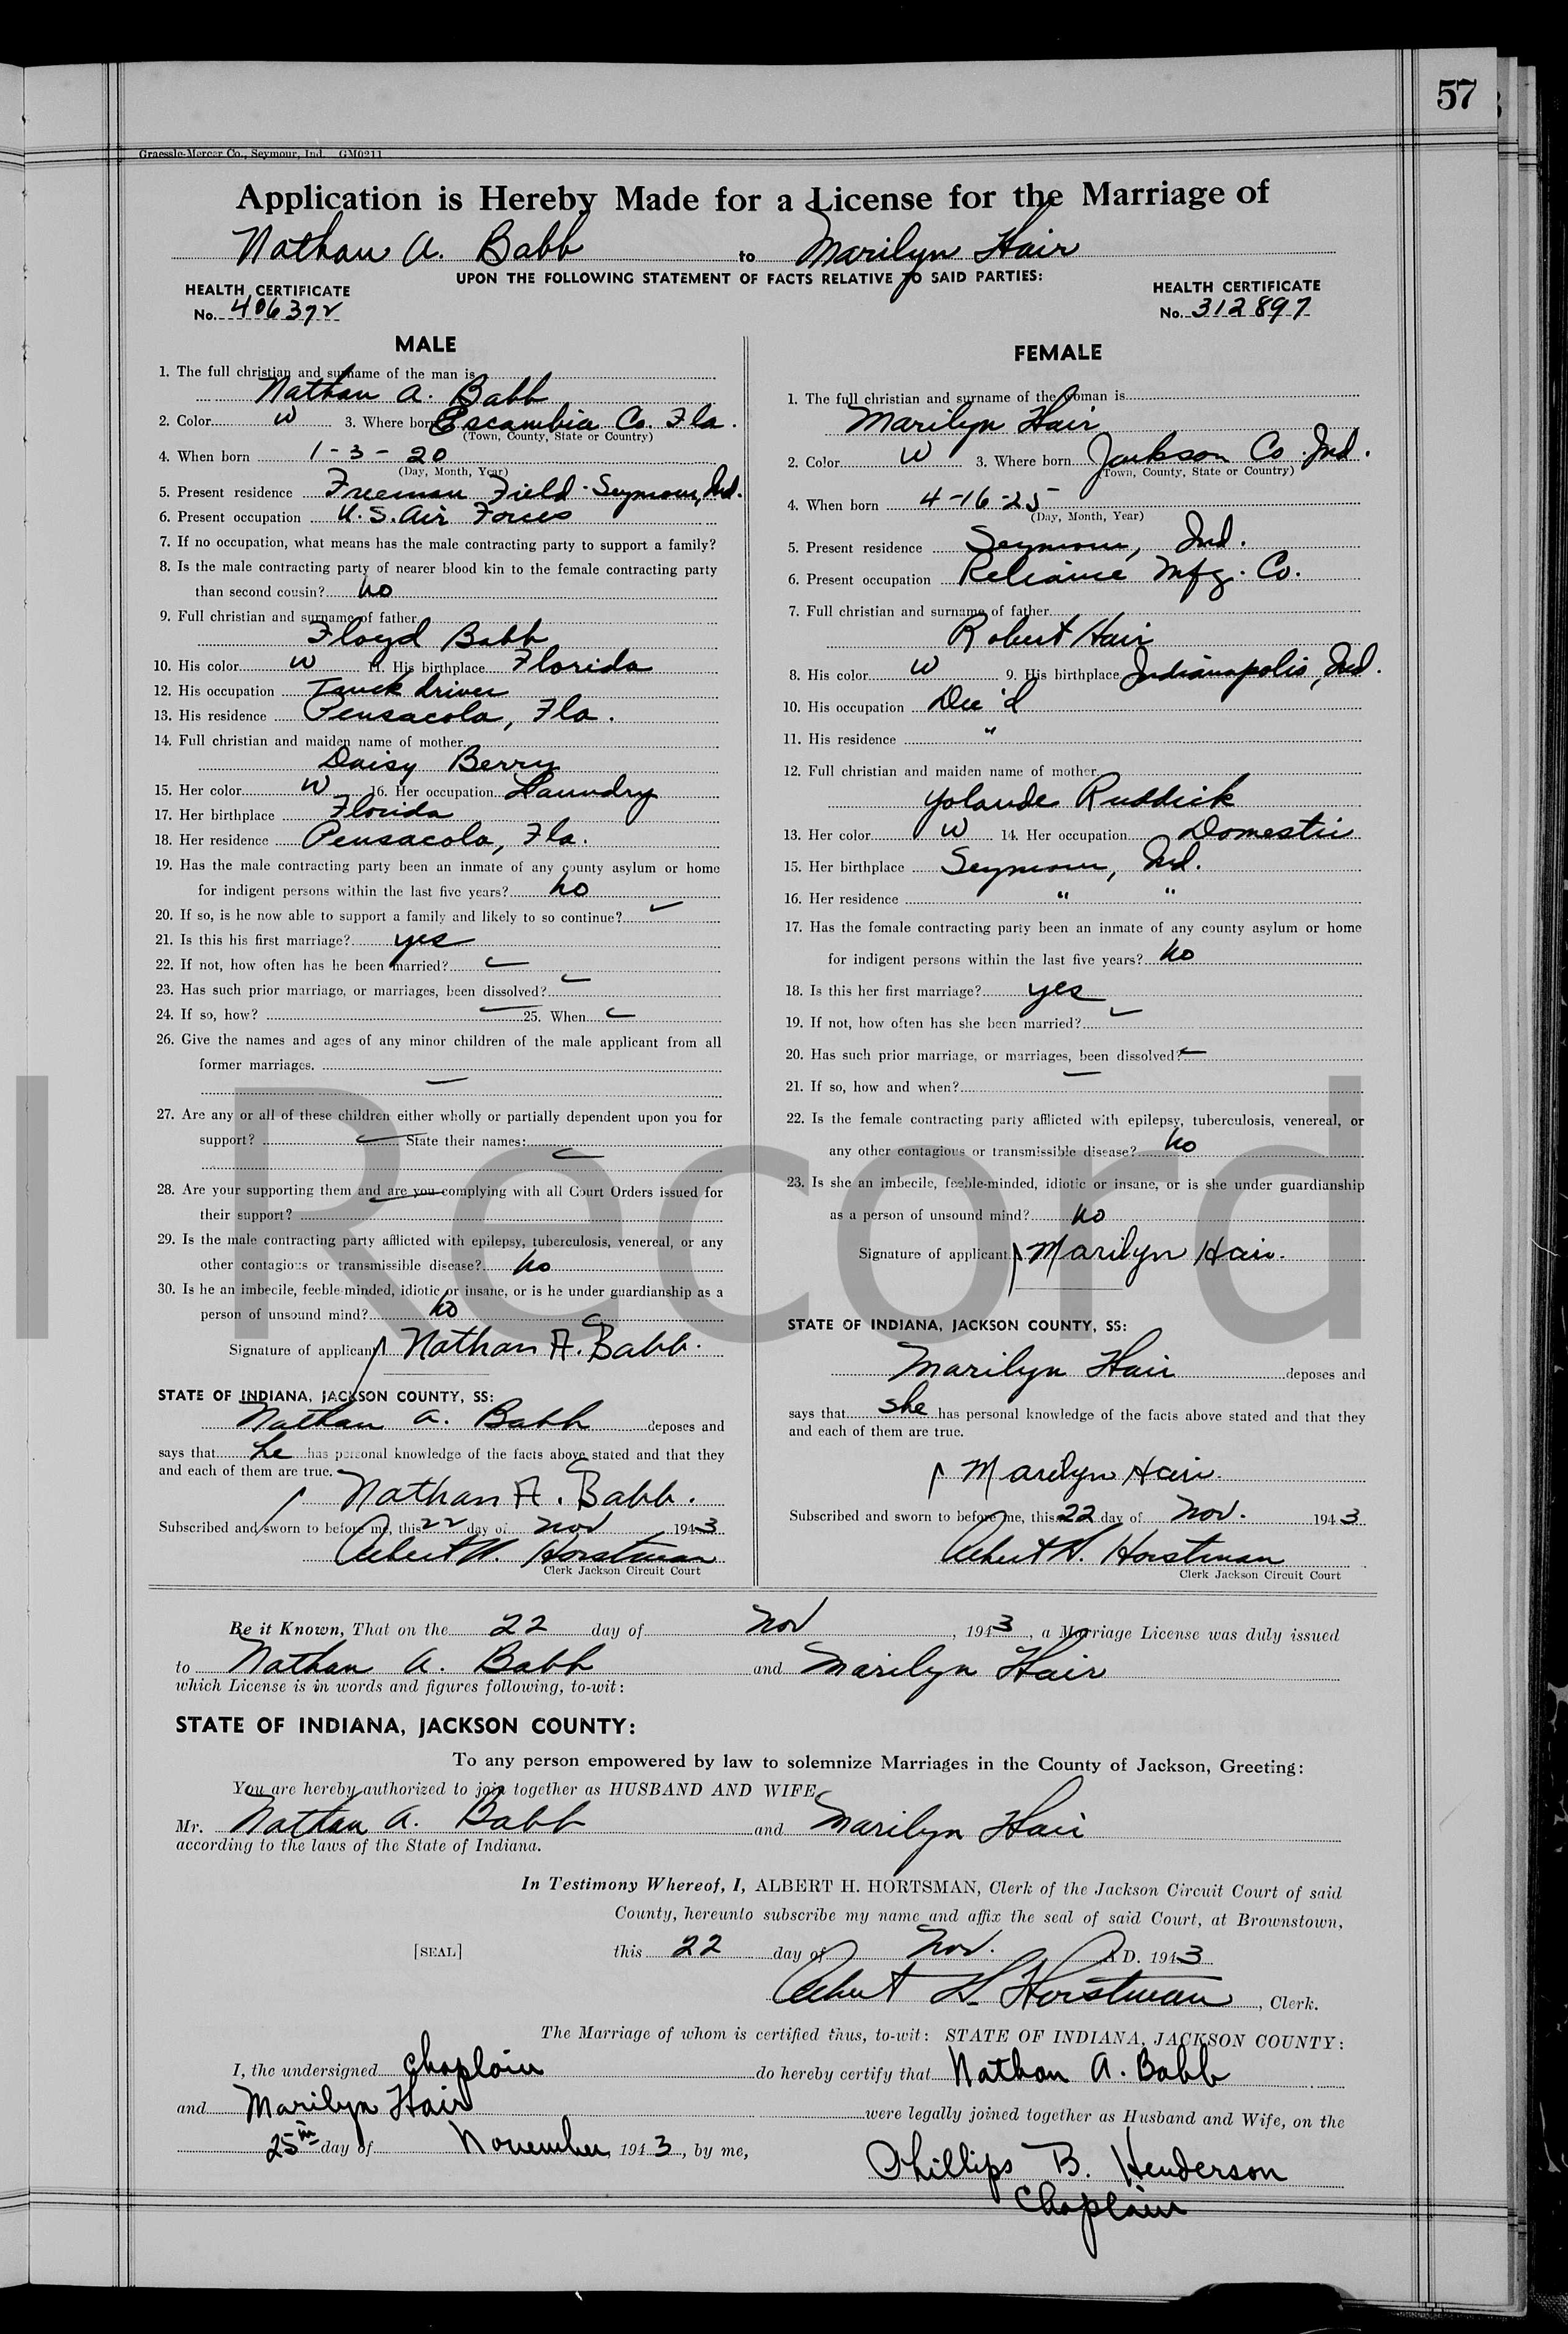 57
Graessle-Mercer Co., Seymour, Ind. GM0211
Application is Hereby Made for a License for the Marriage of
Nathan A. Babb to Marilyn Hair
UPON THE FOLLOWING STATEMENT OF FACTS RELATIVE TO SAID PARTIES:
HEALTH CERTIFICATE
No. 406372
HEALTH CERTIFICATE
No. 312897
MALE
1. The full christian and surname of the man is
Nathan A. Babb
2. Color W 3. Where born Escambia Co. Fla.
(Town, County, State or Country)
4. When born 1-3-20
(Day, Month, Year)
5. Present residence Freeman Field - Seymour, Ind.
6. Present occupation U.S. Air Forces
7. If no occupation, what means has the male contracting party to support a family?
8. Is the male contracting party of nearer blood kin to the female contracting party
than second cousin? no
9. Full christian and surname of father
Floyd Babb
10. His color W 11. His birthplace Florida
12. His occupation Truck driver
13. His residence Pensacola, Fla.
14. Full christian and maiden name of mother
Daisy Berry
15. Her color W 16. Her occupation Laundry
17. Her birthplace Florida
18. Her residence Pensacola, Fla.
19. Has the male contracting party been an inmate of any county asylum or home
for indigent persons within the last five years? no
20. If so, is he now able to support a family and likely to so continue?
21. Is this his first marriage? yes
22. If not, how often has he been married?
23. Has such prior marriage, or marriages, been dissolved?
24. If so, how? 25. When
26. Give the names and ages of any minor children of the male applicant from all
former marriages.
27. Are any or all of these children either wholly or partially dependent upon you for
support? State their names:
28. Are your supporting them and are you complying with all Court Orders issued for
their support?
29. Is the male contracting party afflicted with epilepsy, tuberculosis, venereal, or any
other contagious or transmissible disease? no
30. Is he an imbecile, feeble-minded, idiotic or insane, or is he under guardianship as a
person of unsound mind? no
Signature of applicant Nathan A. Babb.
STATE OF INDIANA, JACKSON COUNTY, SS:
Nathan A. Babb deposes and
says that he has personal knowledge of the facts above stated and that they
and each of them are true.
Nathan A. Babb.
Subscribed and sworn to before me, this 22 day of Nov 1943
Albert H. Horstman
Clerk Jackson Circuit Court
FEMALE
1. The full christian and surname of the woman is
Marilyn Hair
2. Color W 3. Where born Jackson Co. Ind.
(Town, County, State or Country)
4. When born 4-16-25
(Day, Month, Year)
5. Present residence Seymour, Ind.
6. Present occupation Reliance Mfg. Co.
7. Full christian and surname of father
Robert Hair
8. His color W 9. His birthplace Indianapolis, Ind.
10. His occupation Dec'd
11. His residence "
12. Full christian and maiden name of mother
Yolande Ruddick
13. Her color W 14. Her occupation Domestic
15. Her birthplace Seymour, Ind.
16. Her residence " "
17. Has the female contracting party been an inmate of any county asylum or home
for indigent persons within the last five years? no
18. Is this her first marriage? yes
19. If not, how often has she been married?
20. Has such prior marriage, or marriages, been dissolved?
21. If so, how and when?
22. Is the female contracting party afflicted with epilepsy, tuberculosis, venereal, or
any other contagious or transmissible disease? no
23. Is she an imbecile, feeble-minded, idiotic or insane, or is she under guardianship
as a person of unsound mind? no
Signature of applicant Marilyn Hair.
STATE OF INDIANA, JACKSON COUNTY, SS:
Marilyn Hair deposes and
says that she has personal knowledge of the facts above stated and that they
and each of them are true.
Marilyn Hair.
Subscribed and sworn to before me, this 22 day of Nov. 1943
Albert H. Horstman
Clerk Jackson Circuit Court
Be it Known, That on the 22 day of Nov, 1943, a Marriage License was duly issued
to Nathan A. Babb and Marilyn Hair
which License is in words and figures following, to-wit:
STATE OF INDIANA, JACKSON COUNTY:
To any person empowered by law to solemnize Marriages in the County of Jackson, Greeting:
You are hereby authorized to join together as HUSBAND AND WIFE,
Mr. Nathan A. Babb and Marilyn Hair
according to the laws of the State of Indiana.
In Testimony Whereof, I, ALBERT H. HORTSMAN, Clerk of the Jackson Circuit Court of said
County, hereunto subscribe my name and affix the seal of said Court, at Brownstown,
[SEAL] this 22 day of Nov. A.D. 1943
Albert H. Horstman, Clerk.
The Marriage of whom is certified thus, to-wit: STATE OF INDIANA, JACKSON COUNTY:
I, the undersigned Chaplain do hereby certify that Nathan A. Babb
and Marilyn Hair were legally joined together as Husband and Wife, on the
25th day of November, 1943, by me,
Phillips B. Henderson
Chaplain
Record